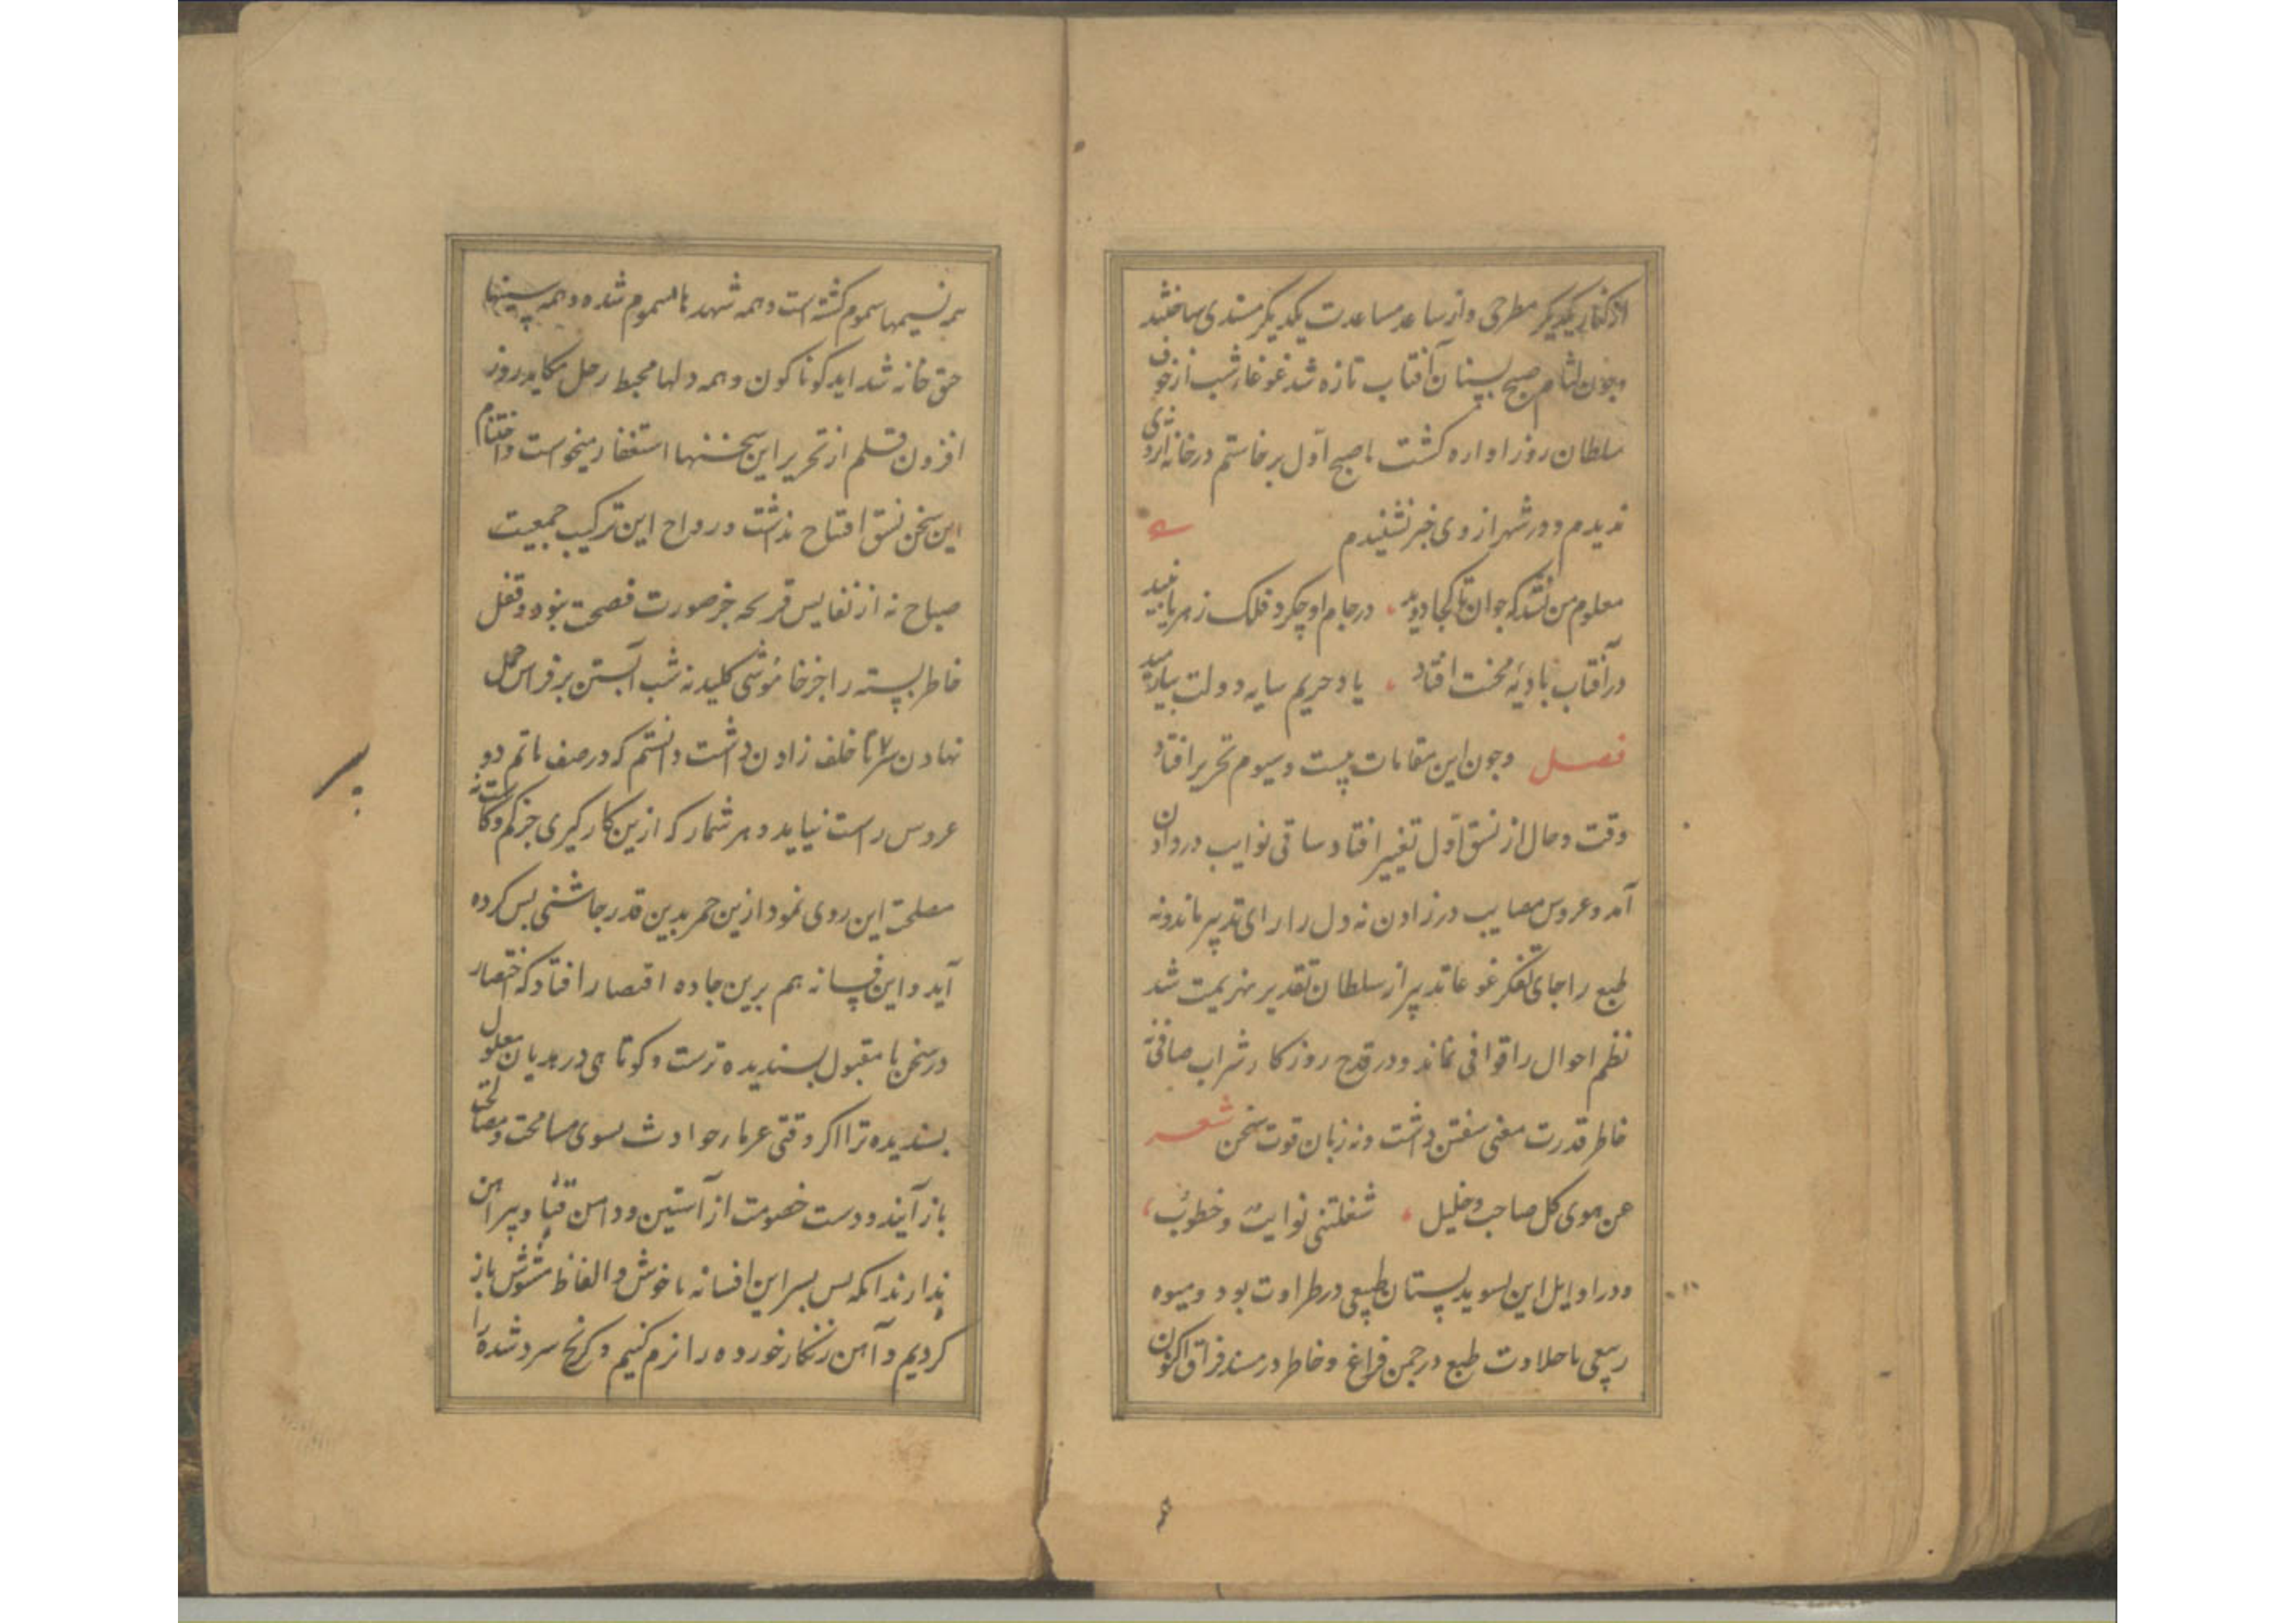 از کنار یکدیگر مطرحی و از ساعد مساعدت یکدیگر مسندی ساختند
و چون لثام صبح بستان آفتاب تازه شد غوغاء شب از خوف
سلطان روز اواره کشت با صبح اول برخاستم در خانه اثر وی
ندیدم و در شهر از وی خبر نشنیدم
معلوم من نشد که جوان تا کجا دوید در جام او چکرد فلک زهر یا نبید
در آفتاب بادیهٔ محنت افتاد یا در حریم سایه دولت بیارمید
فصل وجون این مقامات بیست و سیوم تحریر افتاد
وقت و حال از نسق اول تغییر افتاد ساقی نوایب در دوران
آمد و عروس مصایب در زادن نه دل را رای تدبیر ماند و نه
طبع را جای تفکر غوغا تدبیر از سلطان تقدیر بهزیمت شد
نظم احوال را قوافی نماند و در قدح روزکار شراب صافی نه
خاطر قدرت معنی سفتن داشت و نه زبان قوت سخن شعر
عن هوی کل صاحب و خلیل شغلتنی نوایب و خطوب
و در اوایل این تسوید بستان طبیعی در طراوت بود و میوه
ربیعی با حلاوت طبع در جمن فراغ و خاطر در مسند فراق اکنون
همه نسیمها سموم کشته است و همه شهدها مسموم شده و همه سینها
حق خانه شداید کوناکون و همه دلها محیط رحل مکاید روز
افزون قلم از تحریر این سخنها استغفار میخواست و اختتام
این سخن نسق افتتاح نداشت و رواح این ترکیب جمعیت
صباح نه از نفایس قریحه جز صورت فضیحت نبود و قفل
خاطر بسته را جز خاموشی کلید نه شب آبستن بر فراس حمل
نهادن سر ناخلف زادن داشت دانستم که در صف ماتم دو
عروس راست نیاید و هر شمار که ازین کار کیری جز کم و کاست نه
مصلحت این روی نمود ازین خمر بدین قدر جاشنی بس کرده
آید و این فسانه هم برین جاده اقتصار افتاد که اختصار
در سخن نامقبول بسندیده ترست و کوتاهی در هدیان معلول
بسندیده تر اکر وقتی غرماء حوادث بسوی مسامحت و مصالحت
باز آیند و دست خصومت از آستین و دامن قبا و پیراهن
بدارند انکه بس بسر این افسانه ناخوش و الفاظ مشوش باز
کردیم و آهن زنکار خورده را نرم کنیم و کرنج سرد شده را